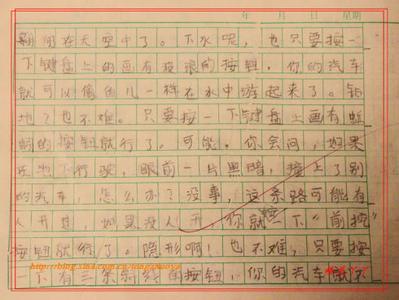 年 月 日 星期
翱翔在天空中了。下水呢，也只要按一
下键盘上的画有波浪的按钮，你的汽车
就可以像鱼儿一样在水中游起来了。钻
地？也不难。只要按一下键盘上画有
的按钮就行了。可能，你会问，如果
在地下行驶，眼前一片黑暗，撞上了别
的汽车，怎么办？没事，这条路可能有
人开過，如果没人开，你就按一下“前挖”
按钮就行了。隐形啊！也不难，只要按
一下有三条斜线的按钮，你的汽车就不
http://blog.sina.com.cn/